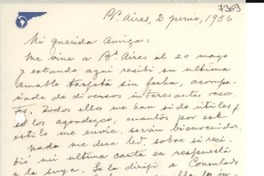 7369
Bs Aires, 2 junio, 1936
Mi querida Amiga:
Me vine a Bs Aires el 20 mayo
y estando aquí recibí su última
amable tarjeta sin fecha, acompa-
ñada de diversos interesantes recor-
tes. Todos ellos me han sido útiles y
se los agradezco, cuantos por este
estilo me envíe, serán bienvenidos.
Nada me dice Ud. sobre si reci-
bió mi última carta en respuesta
a la suya. Se la dirigí a Consulado